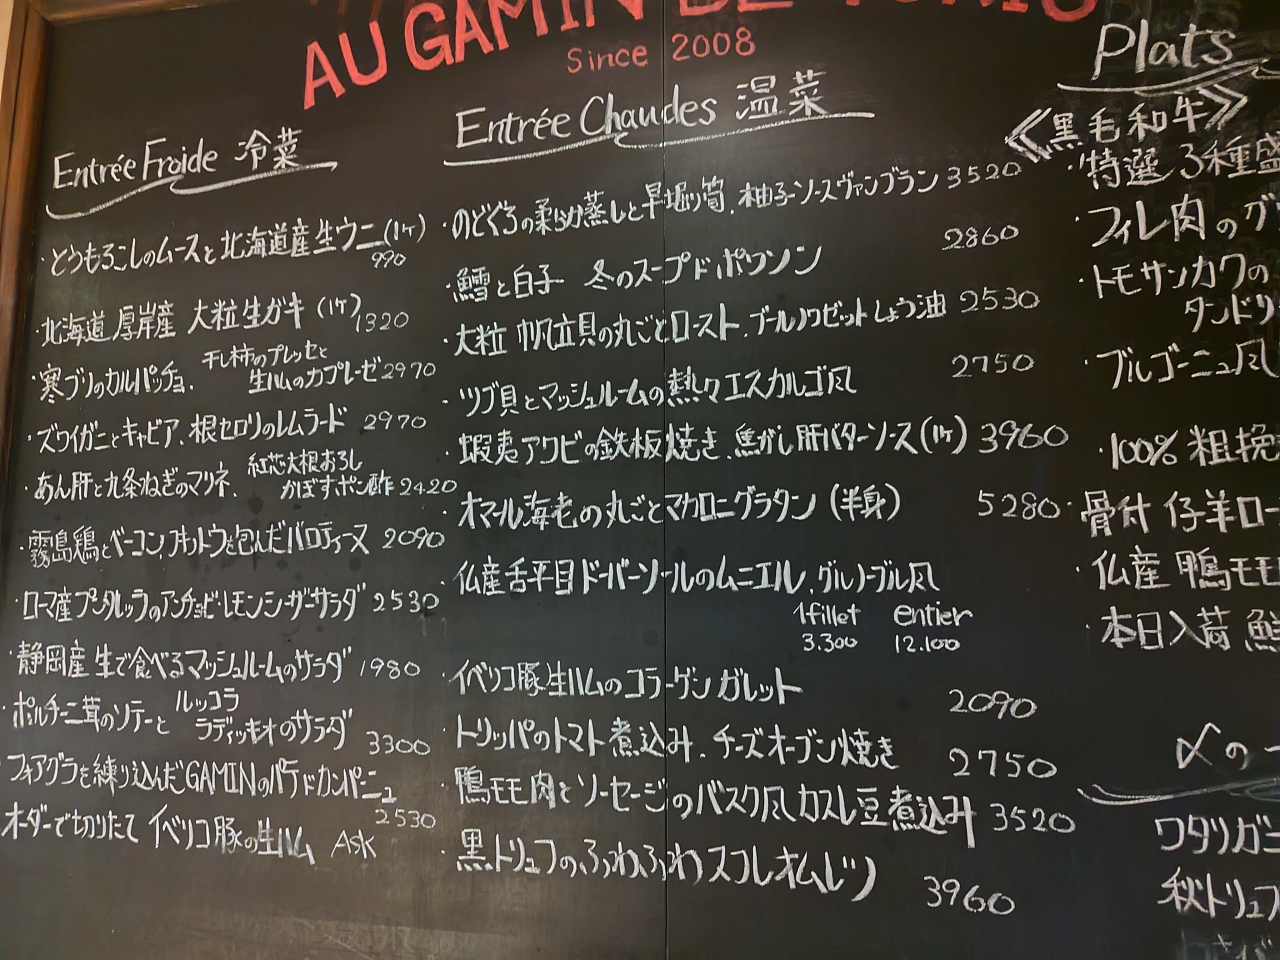 AU GAMIN DE
Since 2008
Entrée Froide 冷菜
・とうもろこしのムースと北海道産生ウニ(1ケ)
990
・北海道厚岸産 大粒生ガキ (1ケ) 1320
・寒ブリのカルパッチョ、干し柿のプレッセと
生ハムのカプレーゼ 2970
・ズワイガニとキャビア、根セロリのレムラード 2970
・あん肝と九条ねぎのマリネ、紅芯大根おろし
かぼすポン酢 2420
・霧島鶏とベーコン、フキノトウを包んだバロティーヌ 2090
・ローマ産プンタレッラのアンチョビ・レモンシーザーサラダ 2530
・静岡産 生で食べるマッシュルームのサラダ 1980
・ポルチーニ茸のソテーと ルッコラ
ラディッキオのサラダ 3300
・フォアグラを練り込んだGAMINのパテドカンパーニュ
2530
オーダーで切りたて イベリコ豚の生ハム ASK
Entrée Chaudes 温菜
・のどぐろの柔らか蒸しと早堀り筍、柚子ソースヴァンブラン 3520
・鱈と白子 冬のスープドポワソン 2860
・大粒 帆立貝の丸ごとロースト、ブールノワゼットしょう油 2530
・ツブ貝とマッシュルームの熱々エスカルゴ風 2750
・蝦夷アワビの鉄板焼き、焦がし肝バターソース(1ケ) 3960
・オマール海老の丸ごとマカロニグラタン (半身) 5280
・仏産舌平目ドーバーソールのムニエル、グルノーブル風
1fillet entier
3.300 12.100
・イベリコ豚生ハムのコラーゲンガレット 2090
・トリッパのトマト煮込み、チーズオーブン焼き 2750
・鴨モモ肉とソーセージのバスク風カスレ豆煮込み 3520
・黒トリュフのふわふわスフレオムレツ 3960
Plats
≪黒毛和牛≫
・特選 3種盛
・フィレ肉の
・トモサンカクの
タンドリ
・ブルゴーニュ風
・100% 粗挽
・骨付 仔羊ロー
・仏産 鴨モモ
・本日入荷 鮮
〆の
ワタリガニ
秋トリュフ